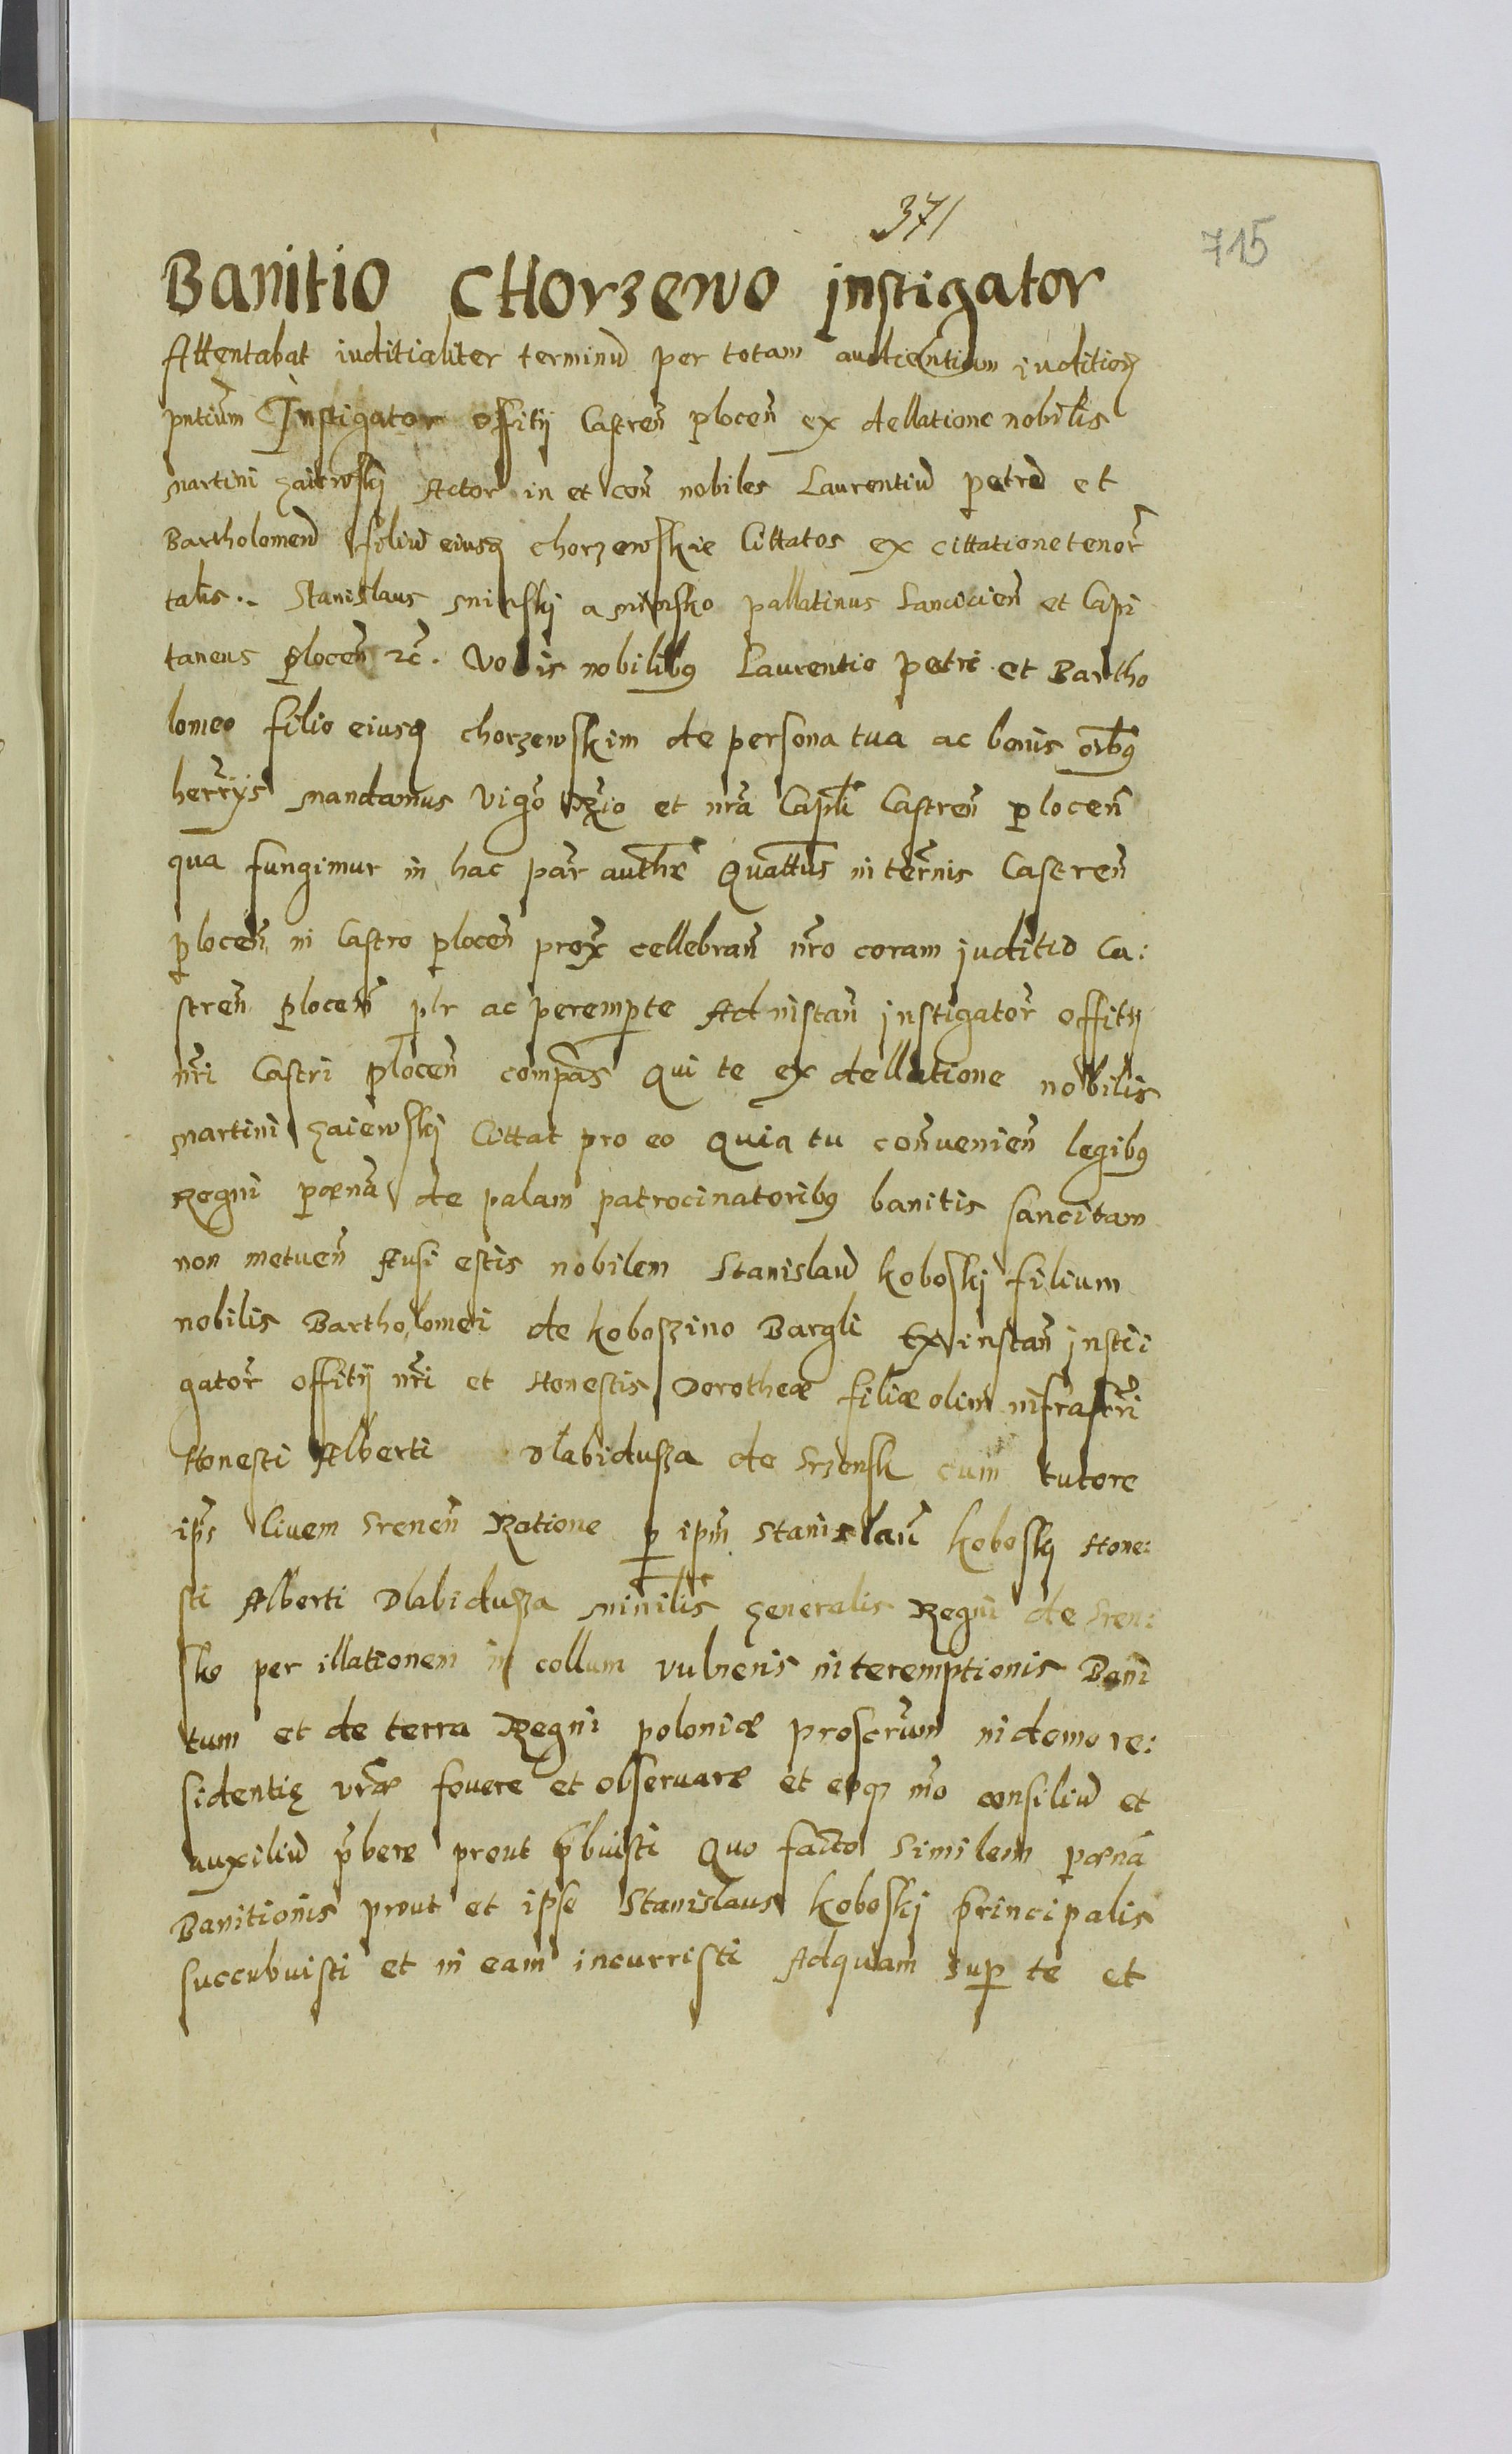 371
715
Banitio CHorzewo instigator
Attentabat iuditialiter terminũ per totam audientiam iuditioꝝ
pntium̃ Instigator offitij Castreñ plocen̄ ex dellatione nobilis
Martini zaiewskj Actor in et con̄ nobiles Laurentiũ petrũ et
Bartholomeũ filiũ eiusꝗ chorzewskie Cittatos ex cittatione tenor̃
talis. Stanislaus Minskj a Minsko pallatinus Lanciciẽn et Capi
taneus plocen̄ ⁊c̃. Vobis nobilibꝰ Laurentio petri et Bartho
lomeo filio eiusꝗ chorzewskim de persona tua ac bonis oĩbꝰ
herr̃ijs mandamus vigõ Rgio et nrã Capli Castren̄ plocen̄
qua fungimur in hac par̃ authẽ Quattus̃ in ter̃nis Castren̄
plocen̄ in Castro plocen̄ prox̃ cellebran̄ nr̃o coram juditio Ca:
stren̄ plocen̄ plr ac perempte Ad instan̄ jnstigator̃ offitij
nr̃i Castri plocen̄ compas̃ Qui te ex dellatione nobilis
Martini zaiewskj Cittat pro eo Quia tu con̄uenien̄ legibꝰ
Regni pœnã de palam patrocinatoribꝰ banitis sancitam
non metuen̄ Ausi estis nobilem Stanislaũ koboskj filium
nobilis Bartholomei de koboszino Bargli Ex instan̄ jnsti
gator̃ offitij nr̃i et Honestis Dorotheæ filiæ olim infrascr̃i
Honesti Alberti Dlabidussa de Srzensk cum tutore
ips̃ Ciuem Srenen̄ Ratione ꝑ ipm̃ Stanislaũ koboskj Hone:
sti Alberti Dlabidussa minilis̃ generalis Regni de Sren:
sko per illationem in collum vulneris interemptionis Bani
tum et de terra Regni poloniæ proscr̃um in domo re:
sidentię vrãe fouere et obseruare et eoꝗ mõ consiliũ et
auxiliũ p̃bere prout p̃buisti Quo facto Similem pœnã
Banitionis prout et ipse Stanislaus koboskj principalis
succubuisti et in eam incurristi Adquam Suꝑ te et